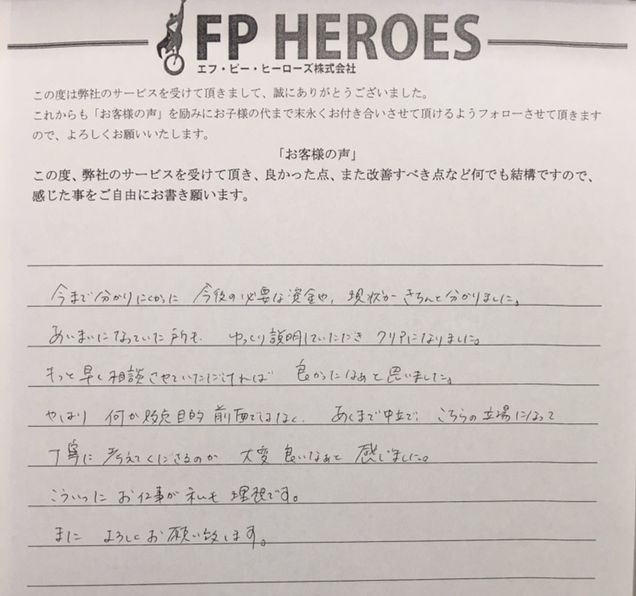 FP HEROES
エフ・ピー・ヒーローズ株式会社
この度は弊社のサービスを受けて頂きまして、誠にありがとうございました。
これからも「お客様の声」を励みにお子様の代まで末永くお付き合いさせて頂けるようフォローさせて頂きます
ので、よろしくお願いいたします。
「お客様の声」
この度、弊社のサービスを受けて頂き、良かった点、また改善すべき点など何でも結構ですので、
感じた事をご自由にお書き願います。
今まで分かりにくかった 今後の必要な資金や、現状が きちんと分かりました。
あいまいになっていた所も、ゆっくり説明していただき クリアになりました。
もっと早く相談させていただければ 良かったなぁと思いました。
やはり 何か 目的 前面ではなく、あくまで中立で、こちらの立場になって
丁寧に 考えてくださるのが 大変 良いなぁと 感じました。
こういった お仕事が 私も 理想です。
また よろしくお願い致します。